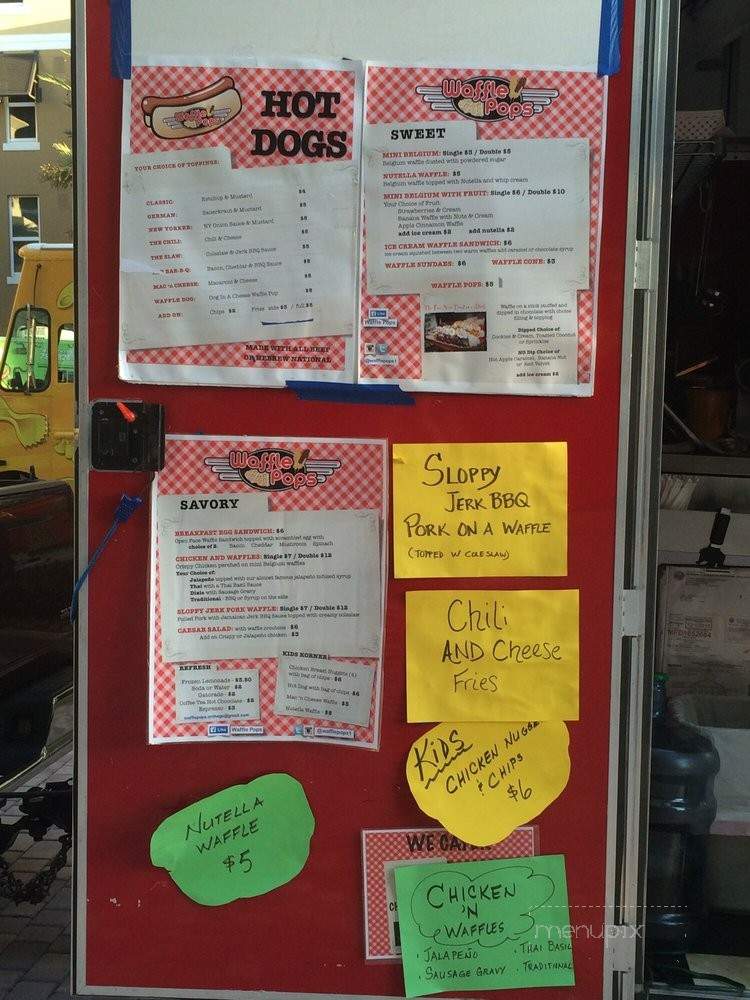 HOT
DOGS
Waffle
Pops
YOUR CHOICE OF TOPPINGS:
CLASSIC: Ketchup & Mustard $4
GERMAN: Sauerkraut & Mustard $5
NEW YORKER: NY Onion Sauce & Mustard $5
THE CHILI: Chili & Cheese $5
THE SLAW: Coleslaw & Jerk BBQ Sauce $5
BAR-B-Q: Bacon, Cheddar & BBQ Sauce $5
MAC 'n CHEESE: Macaroni & Cheese $5
WAFFLE DOG: Dog In A Cheese Waffle Pop $5
ADD ON: Chips $2 Fries side $3 / full $5
MADE WITH ALL BEEF
HEBREW NATIONAL
Waffle
Pops
SWEET
MINI BELGIUM: Single $3 / Double $5
Belgium waffle dusted with powdered sugar
NUTELLA WAFFLE: $5
Belgium waffle topped with Nutella and whip cream
MINI BELGIUM WITH FRUIT: Single $6 / Double $10
Your Choice of Fruit:
Strawberries & Cream
Banana Waffle with Nuts & Cream
Apple Cinnamon Waffle
add ice cream $2 add nutella $2
ICE CREAM WAFFLE SANDWICH: $6
ice cream squished between two warm waffles add caramel or chocolate syrup
WAFFLE SUNDAES: $6 WAFFLE CONE: $3
WAFFLE POPS: $5
Waffle on a stick stuffed and
dipped in chocolate with choice
filling & topping
Dipped Choice of
Cookies & Cream, Toasted Coconut
or Sprinkles
NO Dip Choice of
Hot Apple Caramel, Banana Nut
or Red Velvet
add ice cream $2
Like
Waffle Pops
@wafflepops1
Waffle
Pops
SAVORY
BREAKFAST EGG SANDWICH: $6
Open Face Waffle Sandwich topped with scrambled egg with
choice of 2: Bacon Cheddar Mushroom Spinach
CHICKEN AND WAFFLES: Single $7 / Double $12
Crispy Chicken perched on mini Belgium waffles
Your Choice of:
Jalapeño topped with our almost famous jalapeño infused syrup
Thai with a Thai Basil Sauce
Dixie with Sausage Gravy
Traditional - BBQ or Syrup on the side
SLOPPY JERK PORK WAFFLE: Single $7 / Double $12
Pulled Pork with Jamaican Jerk BBQ Sauce topped with creamy coleslaw
CAESAR SALAD: with waffle croutons - $6
Add on Crispy or Jalapeño chicken $3
REFRESH
Frozen Lemonade - $3.50
Soda or Water - $2
Gatorade - $2
Coffee Tea Hot Chocolate - $2
Espresso - $3
KIDS KORNER
Chicken Breast Nuggets (4)
with bag of chips - $6
Hot Dog with bag of chips - $6
Mac 'n Cheese Waffle - $5
Nutella Waffle - $5
Like Waffle Pops @wafflepops1
SLOPPY
JERK BBQ
PORK ON A WAFFLE
(TOPPED W COLESLAW)
Chili
AND Cheese
Fries
KIDS
CHICKEN NUGG
& CHIPS
$6
NUTELLA
WAFFLE
$5
WE CATER
CHICKEN
'N
WAFFLES
· JALAPEÑO · THAI BASIL
· SAUSAGE GRAVY · TRADITIONAL
menupix